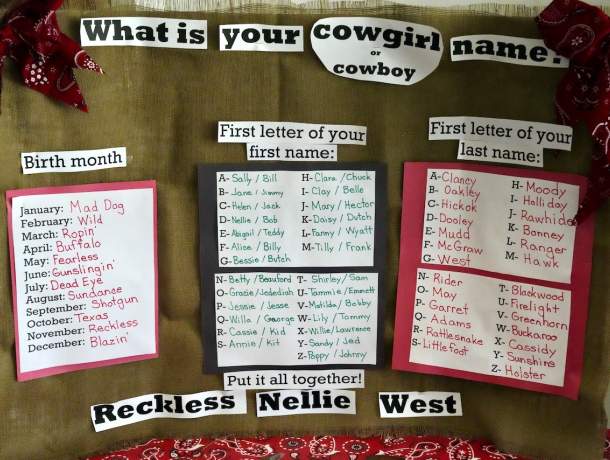 What is your cowgirl name?
or
cowboy
Birth month
January: Mad Dog
February: Wild
March: Ropin'
April: Buffalo
May: Fearless
June: Gunslingin'
July: Dead Eye
August: Sundance
September: Shotgun
October: Texas
November: Reckless
December: Blazin'
First letter of your
first name:
A- Sally / Bill
B- Jane / Jimmy
C- Helen / Jack
D- Nellie / Bob
E- Abigail / Teddy
F- Alice / Billy
G- Bessie / Butch
H- Clara / Chuck
I- Clay / Belle
J- Mary / Hector
K- Daisy / Dutch
L- Fanny / Wyatt
M- Tilly / Frank
N- Betty / Beauford
O- Gracie / Jedediah
P- Jessie / Jesse
Q- Willa / George
R- Cassie / Kid
S- Annie / Kit
T- Shirley / Sam
U- Tammie / Emmett
V- Matilda / Bobby
W- Lily / Tommy
X- Willie / Lawrence
Y- Sandy / Jed
Z- Poppy / Johnny
First letter of your
last name:
A- Clancy
B- Oakley
C- Hickok
D- Dooley
E- Mudd
F- McGraw
G- West
H- Moody
I- Halliday
J- Rawhide
K- Bonney
L- Ranger
M- Hawk
N- Rider
O- May
P- Garret
Q- Adams
R- Rattlesnake
S- Littlefoot
T- Blackwood
U- Firelight
V- Greenhorn
W- Buckaroo
X- Cassidy
Y- Sunshine
Z- Holster
Put it all together!
Reckless Nellie West